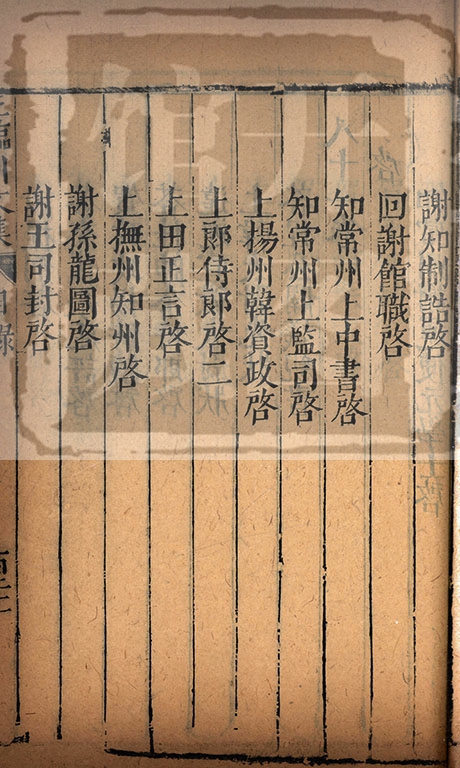 謝知制誥啓
回謝館職啓
知常州上中書啓
知常州上監司啓
上揚州韓資政啓
上郎侍郎啓二
上田正言啓
上撫州知州啓
謝孫龍圖啓
謝王司封啓
王臨川文集 目錄